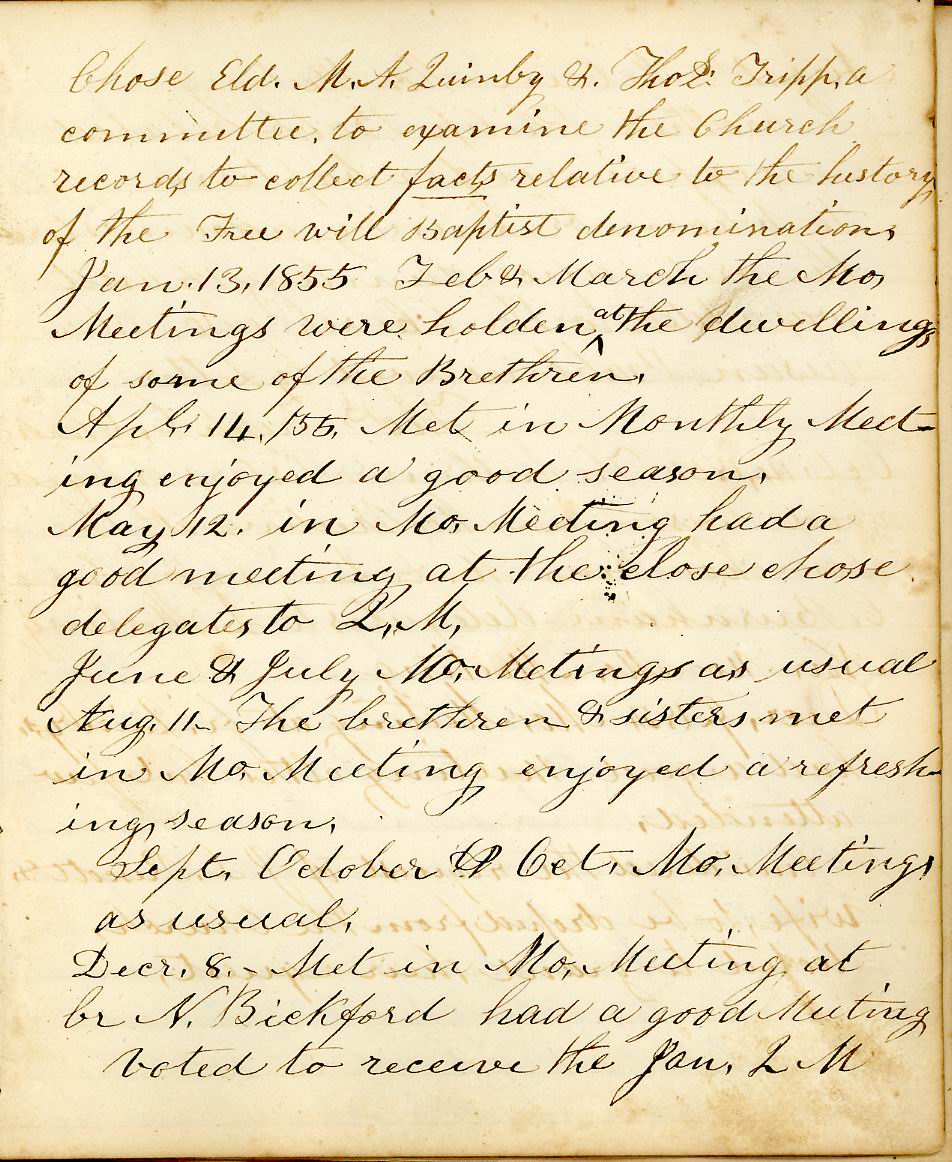 Chose Eld. M. A. Quimby &. Thos. Tripp, a
committee, to examine the Church
records to collect facts relative to the history
of the Free will Baptist denomination,
Jan. 13, 1855 Feb & March the Mo,
Meetings were holden, at the dwellings
of some of the Brethren,
Apl. 14, /55, Met in Monthly Meet-
ing enjoyed a good season,
May 12. in Mo, Meeting had a
good meeting at the close chose
delegates to Q, M,
June & July Mo, Meetings as usual
Aug, 11- The brethren & sisters met
in Mo, Meeting enjoyed a refresh-
ing season,
Sept, October & Oct, Mo, Meetings
as usual,
Decr, 8,- Met in Mo, Meeting at
br N. Bickford had a good Meeting
voted to receive the Jan, Q M